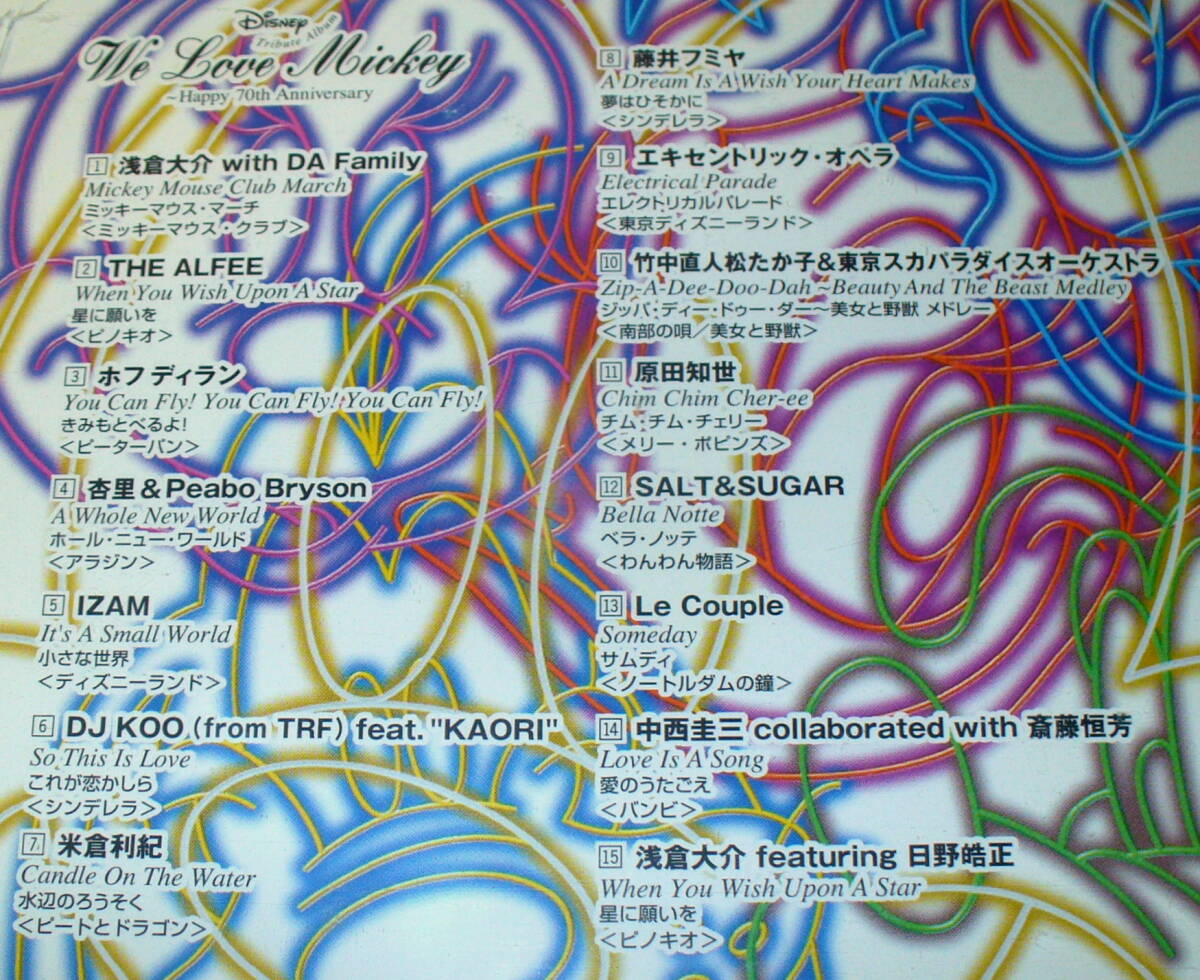 Disney
Tribute Album
We Love Mickey
~Happy 70th Anniversary
1 浅倉大介 with DA Family
Mickey Mouse Club March
ミッキーマウス・マーチ
<ミッキーマウス・クラブ>
2 THE ALFEE
When You Wish Upon A Star
星に願いを
<ピノキオ>
3 ホフ ディラン
You Can Fly! You Can Fly! You Can Fly!
きみもとべるよ!
<ピーターパン>
4 杏里&Peabo Bryson
A Whole New World
ホール・ニュー・ワールド
<アラジン>
5 IZAM
It's A Small World
小さな世界
<ディズニーランド>
6 DJ KOO (from TRF) feat. "KAORI"
So This Is Love
これが恋かしら
<シンデレラ>
7 米倉利紀
Candle On The Water
水辺のろうそく
<ピートとドラゴン>
8 藤井フミヤ
A Dream Is A Wish Your Heart Makes
夢はひそかに
<シンデレラ>
9 エキセントリック・オペラ
Electrical Parade
エレクトリカルパレード
<東京ディズニーランド>
10 竹中直人松たか子&東京スカパラダイスオーケストラ
Zip-A-Dee-Doo-Dah ~Beauty And The Beast Medley
ジッパ・ディー・ドゥー・ダー~美女と野獣 メドレー
<南部の唄/美女と野獣>
11 原田知世
Chim Chim Cher-ee
チム・チム・チェリー
<メリー・ポピンズ>
12 SALT&SUGAR
Bella Notte
ベラ・ノッテ
<わんわん物語>
13 Le Couple
Someday
サムデイ
<ノートルダムの鐘>
14 中西圭三 collaborated with 斎藤恒芳
Love Is A Song
愛のうたごえ
<バンビ>
15 浅倉大介 featuring 日野皓正
When You Wish Upon A Star
星に願いを
<ピノキオ>